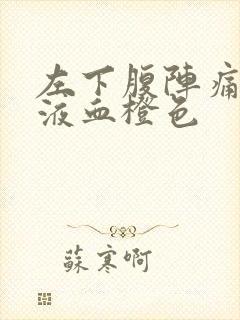 左下腹陣痛
液血橙色
蘇寒啊